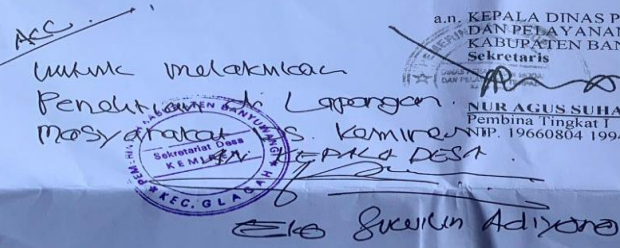 Acc.
untuk melakukan
Penelitian di Lapangan.
masyarakat Ds. Kemiren
AN KEPALA DESA.
Eko Suwilin Adiyono
PEMERINTAH KABUPATEN BANYUWANGI
Sekretariat Desa
KEMIREN
KEC. GLAGAH
a.n. KEPALA DINAS P
DAN PELAYANAN
KABUPATEN BAN
Sekretaris
NUR AGUS SUHA
Pembina Tingkat I
NIP. 19660804 1994